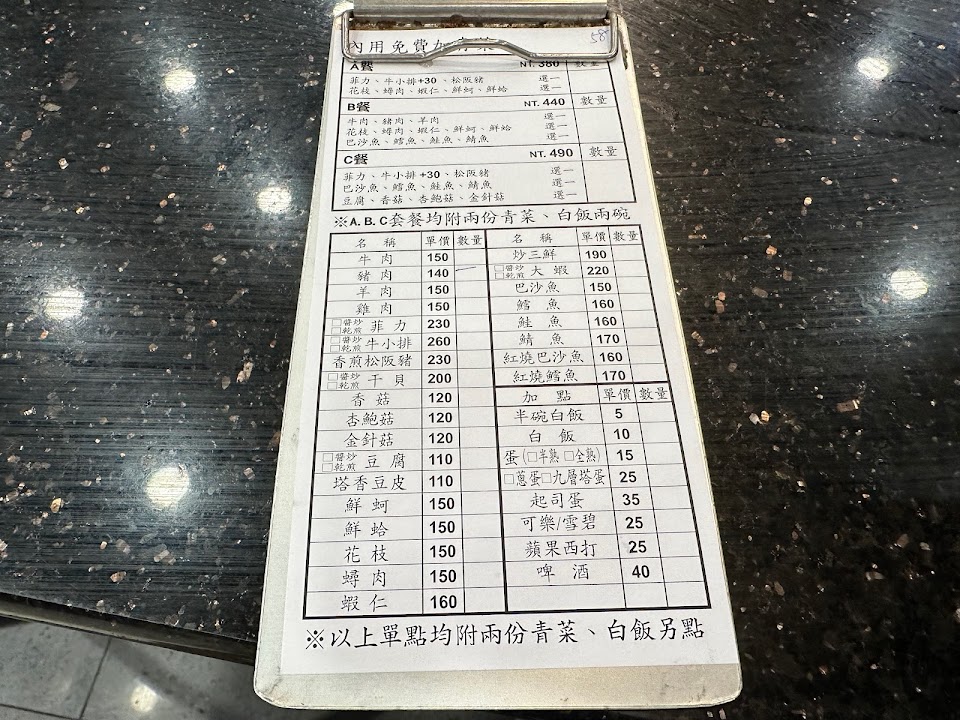 內用免費加青菜
58
A餐 NT. 380 數量
菲力、牛小排+30、松阪豬 選一
花枝、蟳肉、蝦仁、鮮蚵、鮮蛤 選一
B餐 NT. 440 數量
牛肉、豬肉、羊肉 選一
花枝、蟳肉、蝦仁、鮮蚵、鮮蛤 選一
巴沙魚、鱈魚、鮭魚、鯖魚 選一
C餐 NT. 490 數量
菲力、牛小排+30、松阪豬 選一
巴沙魚、鱈魚、鮭魚、鯖魚 選一
豆腐、香菇、杏鮑菇、金針菇 選一
※A.B.C套餐均附兩份青菜、白飯兩碗
名稱 單價 數量
牛肉 150
豬肉 140
羊肉 150
雞肉 150
□醬炒 □乾煎 菲力 230
□醬炒 □乾煎 牛小排 260
香煎松阪豬 230
□醬炒 □乾煎 干貝 200
香菇 120
杏鮑菇 120
金針菇 120
□醬炒 □乾煎 豆腐 110
塔香豆皮 110
鮮蚵 150
鮮蛤 150
花枝 150
蟳肉 150
蝦仁 160
名稱 單價 數量
炒三鮮 190
□醬炒 □乾煎 大蝦 220
巴沙魚 150
鱈魚 160
鮭魚 160
鯖魚 170
紅燒巴沙魚 160
紅燒鱈魚 170
加點 單價 數量
半碗白飯 5
白飯 10
蛋(□半熟 □全熟) 15
□蔥蛋□九層塔蛋 25
起司蛋 35
可樂/雪碧 25
蘋果西打 25
啤酒 40
※以上單點均附兩份青菜、白飯另點